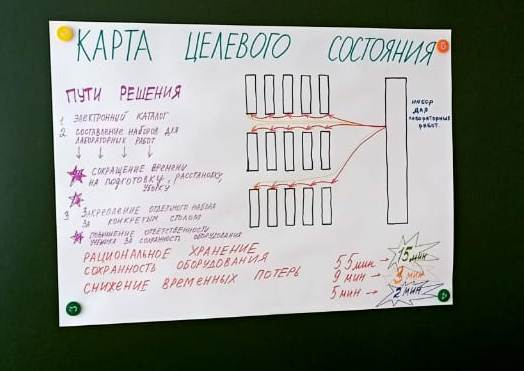 КАРТА ЦЕЛЕВОГО СОСТОЯНИЯ
ПУТИ РЕШЕНИЯ
1 ЭЛЕКТРОННЫЙ КАТАЛОГ
2 СОСТАВЛЕНИЕ НАБОРОВ ДЛЯ
ЛАБОРАТОРНЫХ РАБОТ
СОКРАЩЕНИЕ ВРЕМЕНИ
НА ПОДГОТОВКУ, РАССТАНОВКУ,
УБОРКУ
3. ЗАКРЕПЛЕНИЕ ОТДЕЛЬНОГО НАБОРА
ЗА КОНКРЕТНЫМ СТОЛОМ
ПОВЫШЕНИЕ ОТВЕТСТВЕННОСТИ
УЧЕНИКА ЗА СОХРАННОСТЬ ОБОРУДОВАНИЯ
РАЦИОНАЛЬНОЕ ХРАНЕНИЕ
СОХРАННОСТЬ ОБОРУДОВАНИЯ
СНИЖЕНИЕ ВРЕМЕННЫХ ПОТЕРЬ
НАБОР
ДЛЯ
ЛАБОРАТОРНЫХ
РАБОТ.
55 мин → 15 мин
9 мин → 3 мин
5 мин → 2 мин